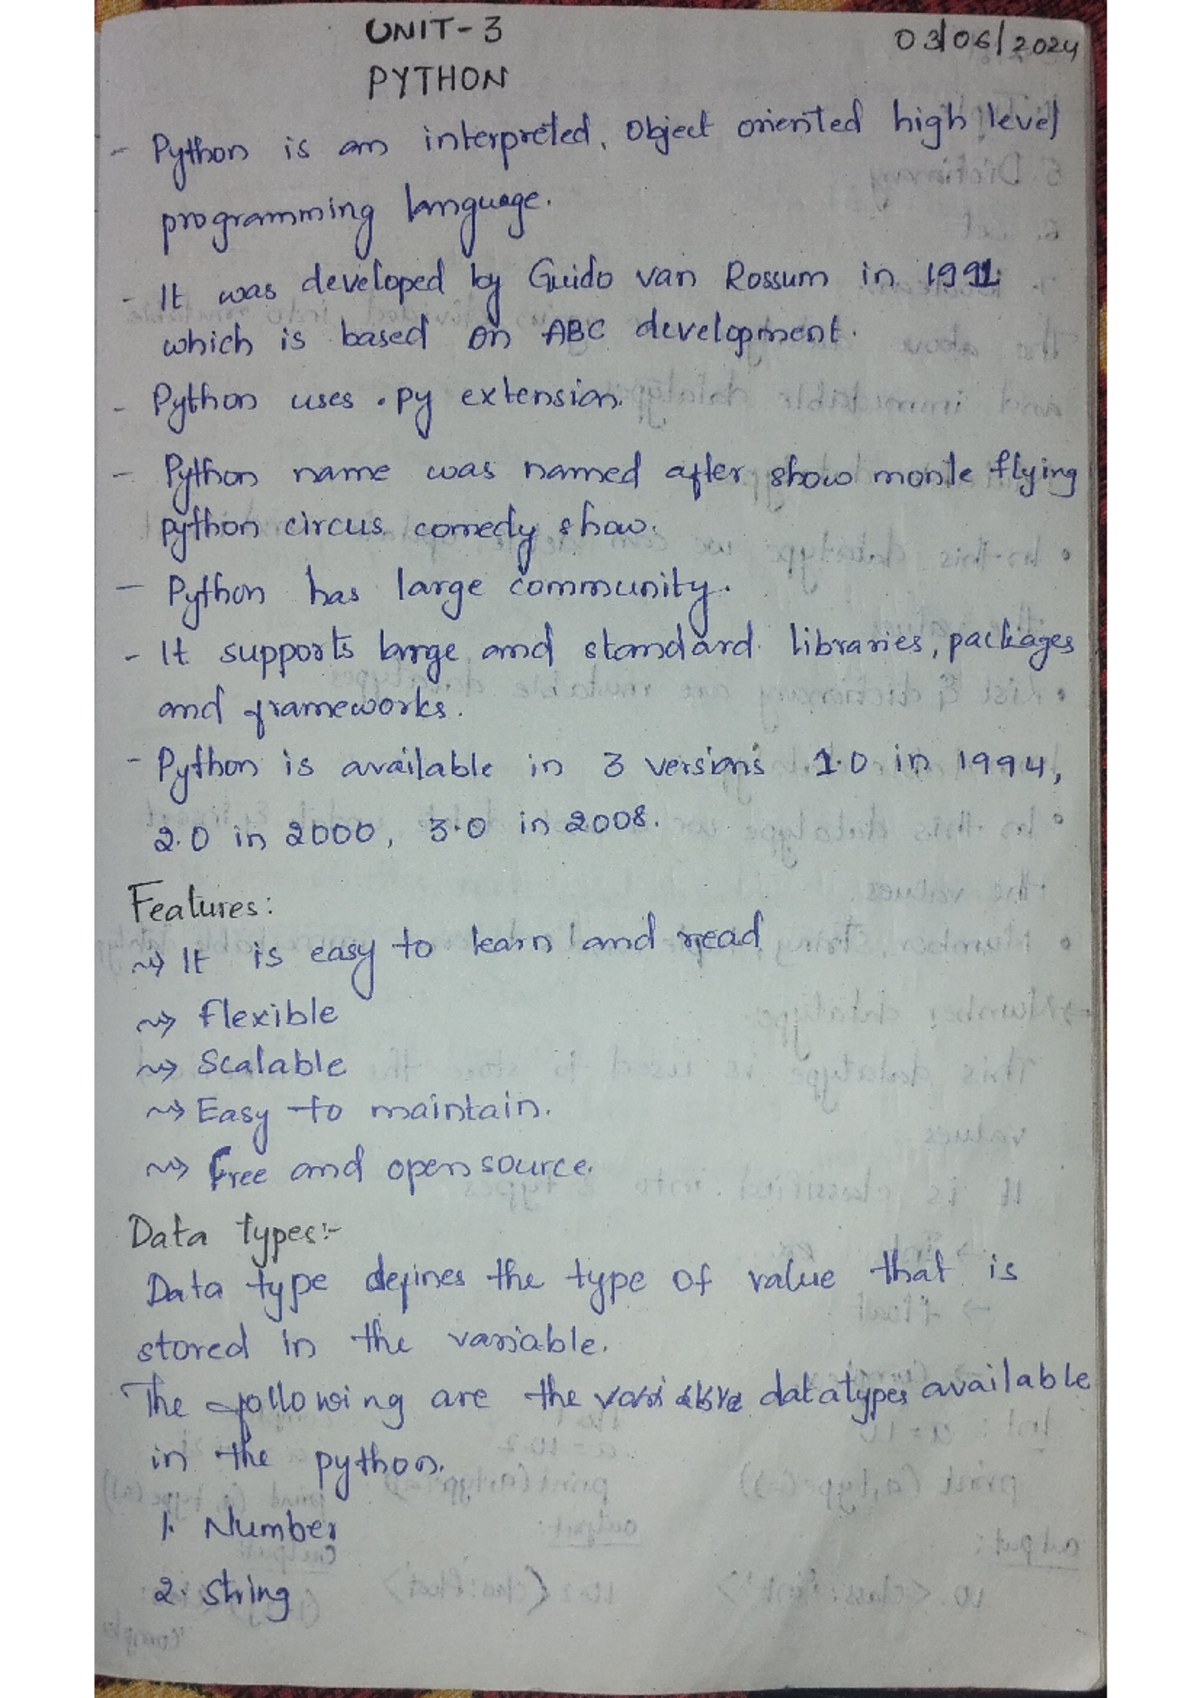 UNIT-3
03/06/2024
PYTHON
- Python is an interpreted, Object oriented high level
programming language.
- It was developed by Guido van Rossum in 1991
which is based on ABC development.
- Python uses .py extension.
- Python name was named after show monte flying
python circus comedy show.
- Python has large community.
- It supports large and standard libraries, packages
and frameworks.
- Python is available in 3 versions 1.0 in 1994,
2.0 in 2000, 3.0 in 2008.
Features:
⇝ It is easy to learn and read
⇝ flexible
⇝ Scalable
⇝ Easy to maintain.
⇝ Free and open source.
Data types:-
Data type defines the type of value that is
stored in the variable.
The following are the datatypes available
in the python.
1. Number
2. String